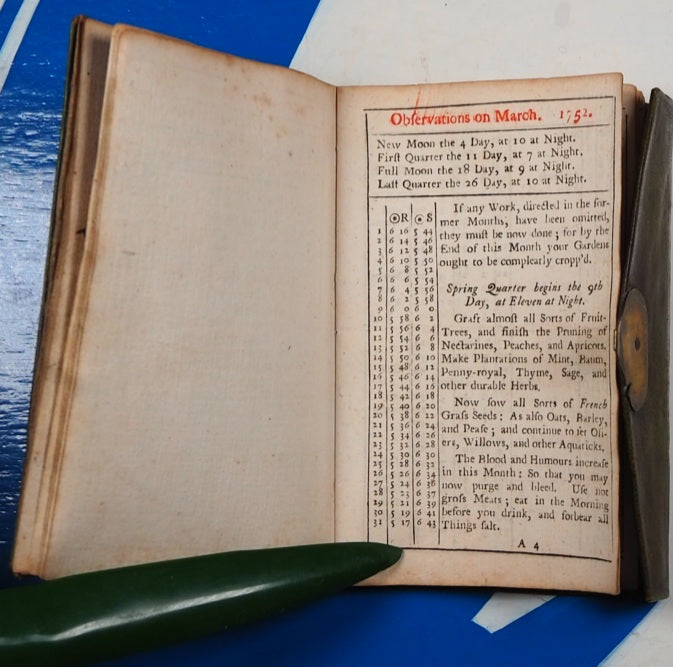 Obſervations on March. 1752.
New Moon the 4 Day, at 10 at Night.
Firſt Quarter the 11 Day, at 7 at Night.
Full Moon the 18 Day, at 9 at Night.
Laſt Quarter the 26 Day, at 10 at Night.
☉R ☉S
1 6 16 5 44
2 6 14 5 46
3 6 12 5 48
4 6 10 5 50
5 6 8 5 52
6 6 6 5 54
7 6 4 5 56
8 6 2 5 58
9 6 0 6 0
10 5 58 6 2
11 5 56 6 4
12 5 54 6 6
13 5 52 6 8
14 5 50 6 10
15 5 48 6 12
16 5 46 6 14
17 5 44 6 16
18 5 42 6 18
19 5 40 6 20
20 5 38 6 22
21 5 36 6 24
22 5 34 6 26
23 5 32 6 28
24 5 30 6 30
25 5 28 6 32
26 5 26 6 34
27 5 24 6 36
28 5 23 6 37
29 5 21 6 39
30 5 19 6 41
31 5 17 6 43
If any Work, directed in the for-
mer Months, have been omitted,
they muſt be now done; for by the
End of this Month your Gardens
ought to be compleatly cropp'd.
Spring Quarter begins the 9th
Day, at Eleven at Night.
Graft almoſt all Sorts of Fruit-
Trees, and finiſh the Pruning of
Nectarines, Peaches, and Apricots.
Make Plantations of Mint, Baum,
Penny-royal, Thyme, Sage, and
other durable Herbs.
Now ſow all Sorts of French
Graſs Seeds: As alſo Oats, Barley,
and Peaſe; and continue to ſet Oſi-
ers, Willows, and other Aquaticks.
The Blood and Humours increaſe
in this Month: So that you may
now purge and bleed. Uſe not
groſs Meats; eat in the Morning
before you drink, and forbear all
Things ſalt.
A 4